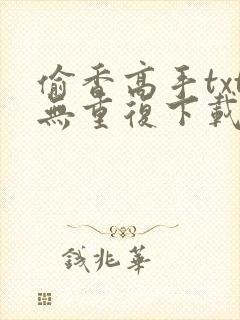 偷香高手txt
無重復下載
錢兆華